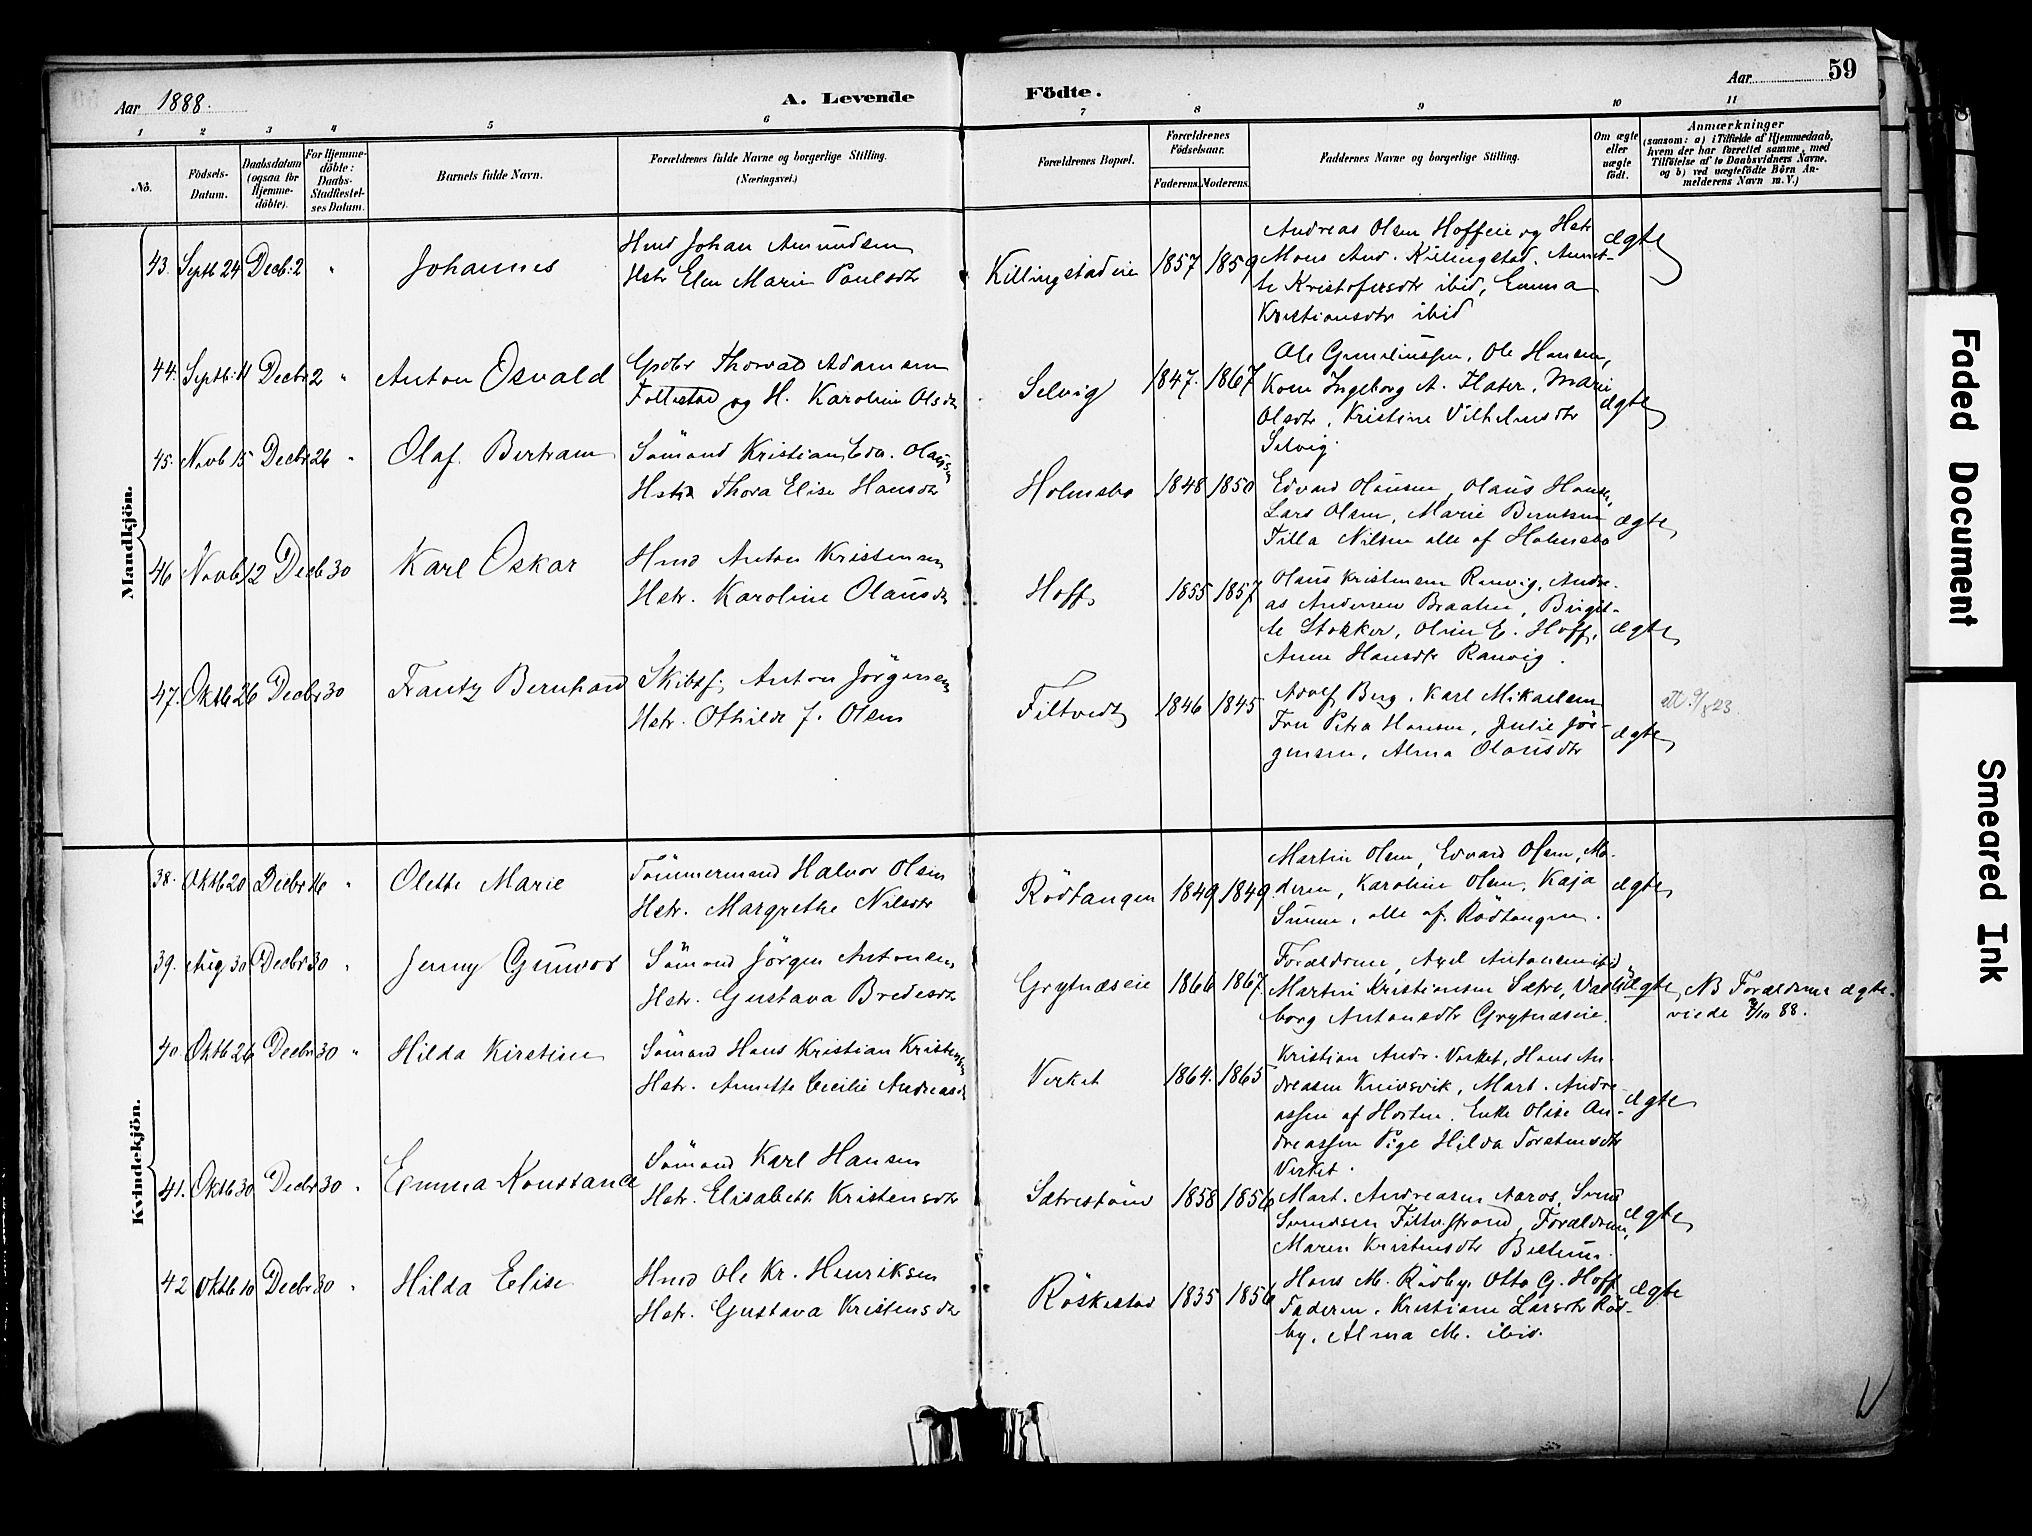 59
Aar 1888. A. Levende Födte. Aar
1 2 3 4 5 6 7 8 9 10 11
No.
Födsels-Datum.
Daabsdatum (ogsaa for Hjemme-döbte).
For Hjemme-döbte: Daabs-Stadfæstel-ses Datum.
Barnets fulde Navn.
Forældrenes fulde Navne og borgerlige Stilling.
(Næringsvei.)
Forældrenes Bopæl.
Forældrenes Födselsaar.
Faderens. Moderens.
Faddernes Navne og borgerlige Stilling.
Om ægte eller uægte födt.
Anmærkninger
(saasom: a) i Tilfælde af Hjemmedaab,
hvem der har forrettet samme, med
Tilföielse af to Daabsvidners Navne,
og b) ved uægtefödte Börn An-
melderens Navn m. V.)
Mandkjön.
43. Septb 24 Decb: 2 " Johannes
Hmd Johan Amundsen
Hstr Elen Marie Paulsdtr
Killingstadeie 1857 1859
Andreas Olsen Hoffeie og Hstr
Mons And. Killingstad, Annet-
te Kristofersdtr ibid, Emma
Kristiansdtr ibid
ægte
44. Septb: 11 Decbr 2 " Anton Osvald
Gsdbr Thorvald Adamsen
Follestad og H. Karoline Olsdtr
Selvig 1847. 1867
Ole Guneliussen, Ole Hansen,
Kone Ingeborg A. Flater, Marie
Olsdtr, Kristine Vilhelmsdtr
Selvig.
ægte
45. Novb 15 Decbr 26 " Olaf Bertram
Sömand Kristian Edv. Olaussen
Hstr Thora Elise Hansdtr
Holmsbo 1848 1850
Edvard Olausen, Olaus Hansen,
Lars Olsen, Marie Berntsen
Tilla Nilsen alle af Holmsbo
ægte
46 Novb 12 Decb 30 Karl Oskar
Hmd Anton Kristensen
Hstr. Karoline Olausdtr
Hoff 1855 1857
Olaus Kristensen Ranvig, Andre-
as Andersen Braaten, Birgit-
te Stokker, Oline E. Hoff,
Anne Hansdtr Ranvig.
ægte
47. Oktb 26 Decbr 30 Frantz Bernhard
Skibsf. Anton Jörgensen
Hstr. Othilde J. Olsen
Filtvedt 1846 1845
Adolf Berg, Karl Mikaelsen
Fru Petra Hansen, Julie Jör-
gensen, Alma Olausdtr
ægte
Kvindekjön.
38. Oktb 20 Decbr 16 " Olette Marie
Tömmermand Halvor Olsen
Hstr. Margrethe Nilsdtr
Rödtangen 1849 1849
Martin Olsen, Edvard Olsen, Mo-
deren, Karoline Olsen, Kaja
alle af Rödtangen.
ægte
39. Aug 30 Decbr 30 " Jenny Gunvor
Sömand Jörgen Antonsen
Hstr. Gustava Bredesdtr
Grytnæseie 1866 1867.
Forældrene, Axel Antonsen ibid
Martin Kristiansen Sætre, Val-
borg Antonsdtr Grytnæseie.
ægte NB Forældrene ægte-
viede 3/10 88.
40. Oktb 26 Decbr 30 " Hilda Kirstine
Sömand Hans Kristian Kristensen
Hstr. Annette Cecilie Andreasdtr
Verket 1864. 1865
Kristian Andr. Verket, Hans An-
dreasen Knivsvik, Mart. Andre-
assen af Horten, Enke Olise An-
dreassen Pige Hilda Torstensdtr
Verket.
ægte
41. Oktb 30 Decbr 30 " Emma Konstance
Sömand Karl Hansen
Hstr. Elisabeth Kristensdtr
Sætreström 1858 1856
Mart. Andreasen Aaros, Svend
Svendsen Filtv.strand, Forældrene,
Maren Kristensdtr
ægte
42 Oktb 10 Decbr 30 " Hilda Elise
Hmd Ole Kr. Henriksen
Hstr. Gustava Kristensdtr
Röskestad 1835 1856
Hans M. Rödby, Otto G. Hoff
Faderen, Kristiane Larsdtr Röd-
by, Alma M. ibid.
ægte
Faded Document
Smeared Ink